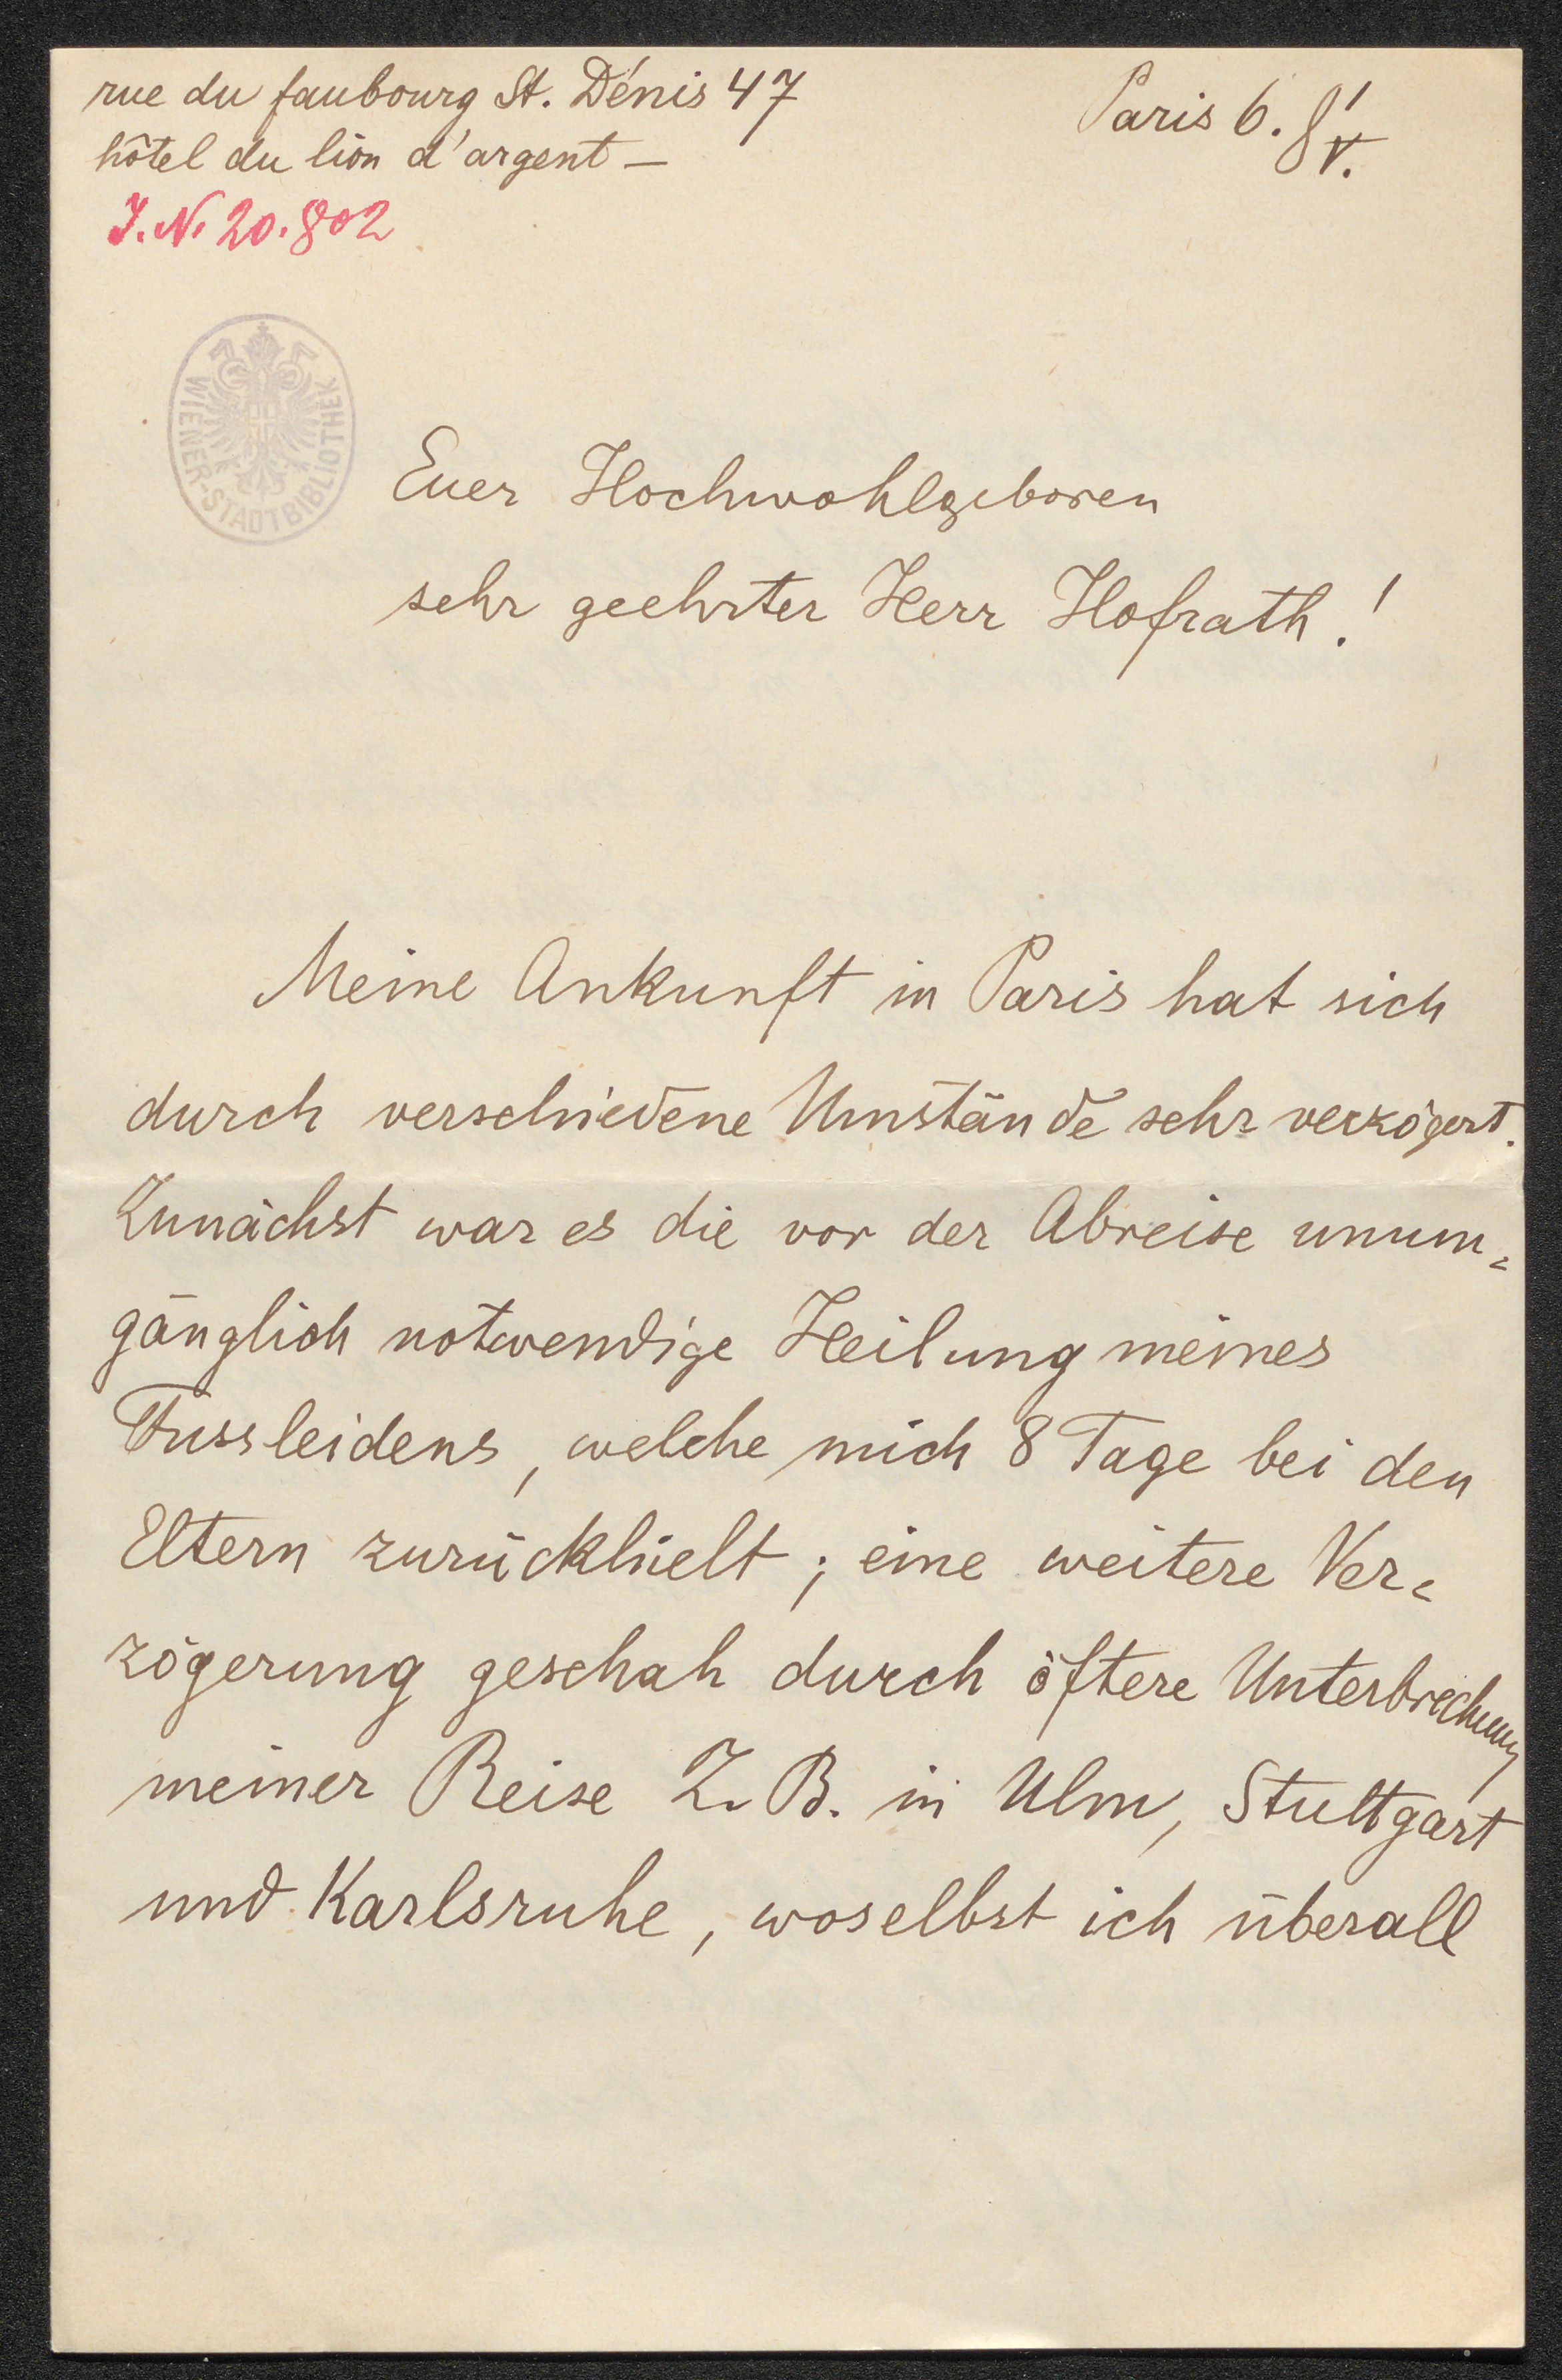 rue du faubourg St. Dénis 47
hôtel du lion d'argent —
Paris 6.
J. N. 20.802
WIENER-STADTBIBLIOTHEK
Euer Hochwohlgeboren
sehr geehrter Herr Hofrath!
Meine Ankunft in Paris hat sich
durch verschiedene Umstände sehr verzögert.
Zunächst war es die vor der Abreise unum=
gänglich notwendige Heilung meines
Fussleidens, welche mich 8 Tage bei den
Eltern zurückhielt; eine weitere Ver=
zögerung geschah durch öftere Unterbrechung
meiner Reise Z. B. in Ulm, Stuttgart
und Karlsruhe, woselbst ich überall